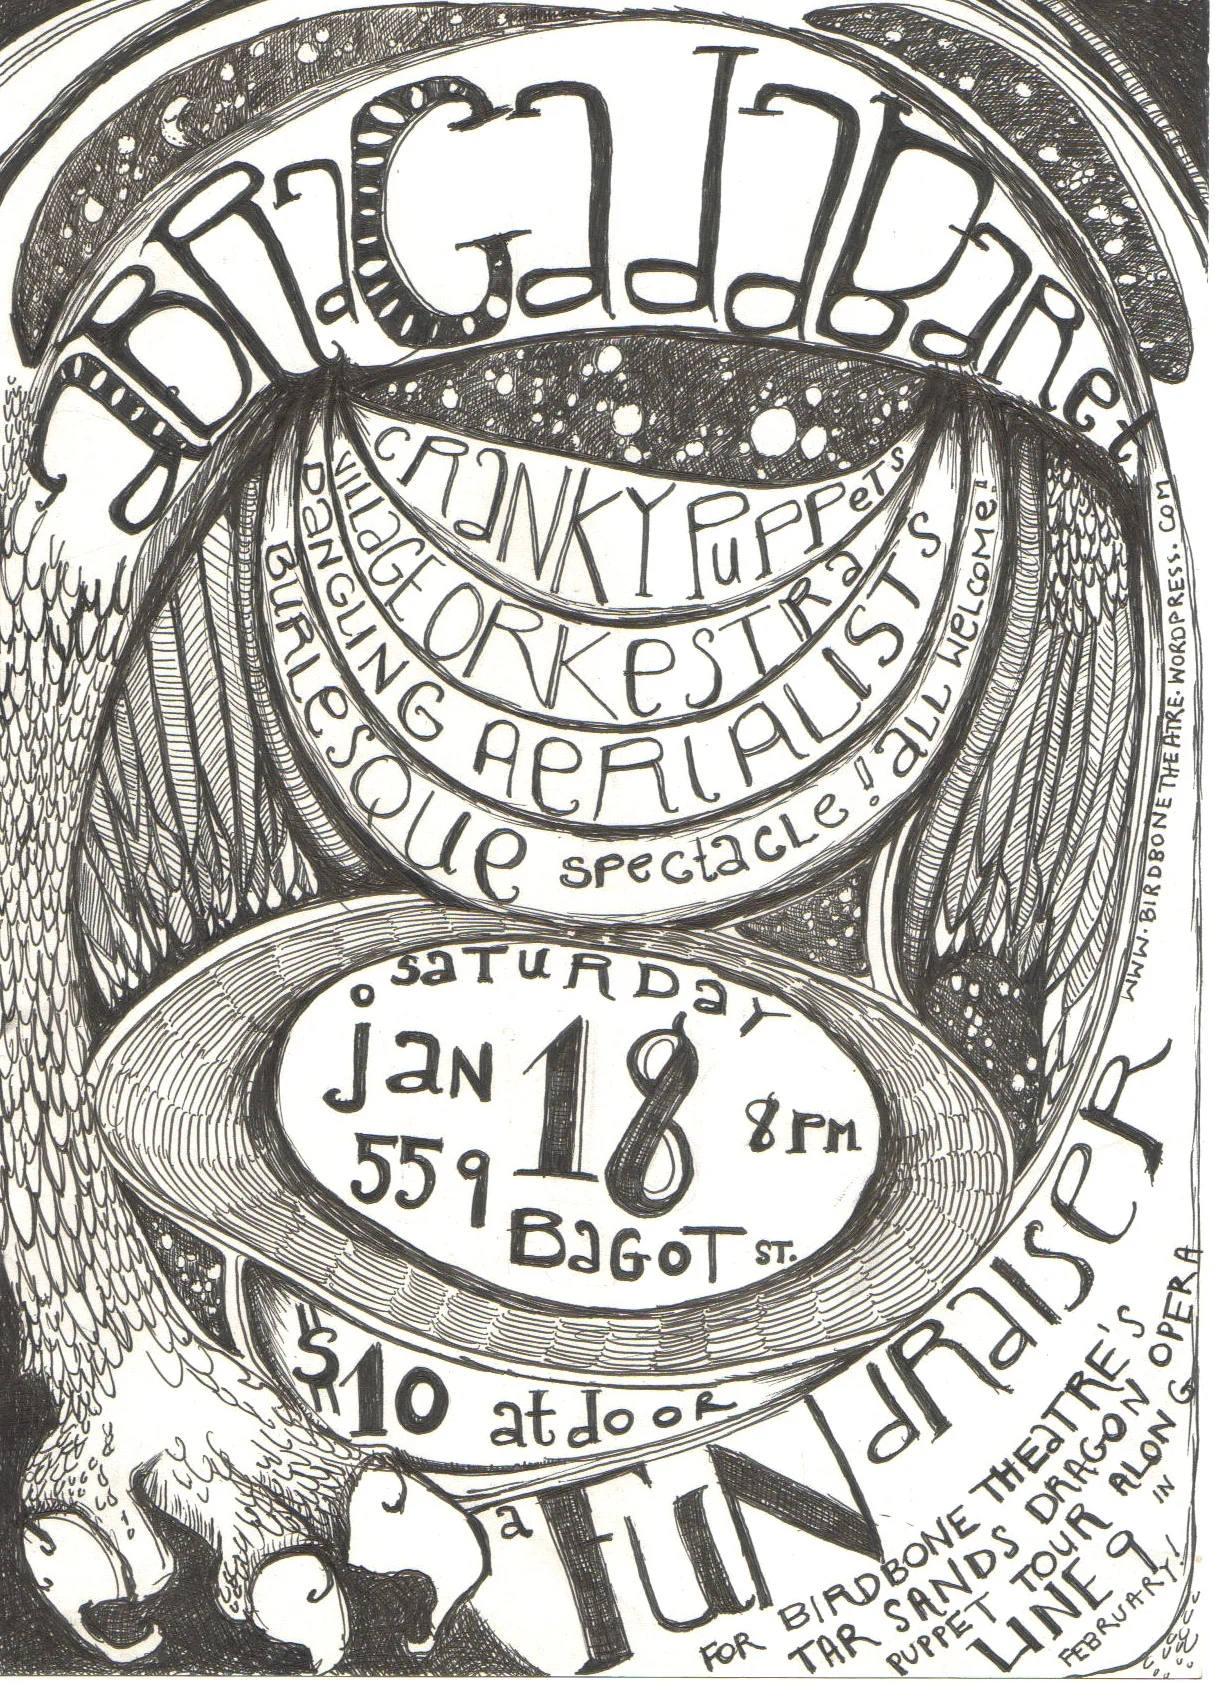 aBRaCadaBaRet
CRaNKY PuPPeTs
VILLaGE ORKeSTRa
DaNGLING AeRIALISTS
BURLesQUe spectacLe! aLL WeLCOMe!
SaTuRDaY
jaN 18 8PM
559 BaGoT ST.
$10 at dooR
a FuNdRaISeR
FOR BIRDBONE THEaTRE'S
TAR SANDS DRAGON
PUPPET TOUR ALONG
LINE 9 IN
FEBRUARY!
OPERA
WWW.BIRDBONETHEATRE.WORDPRESS.COM